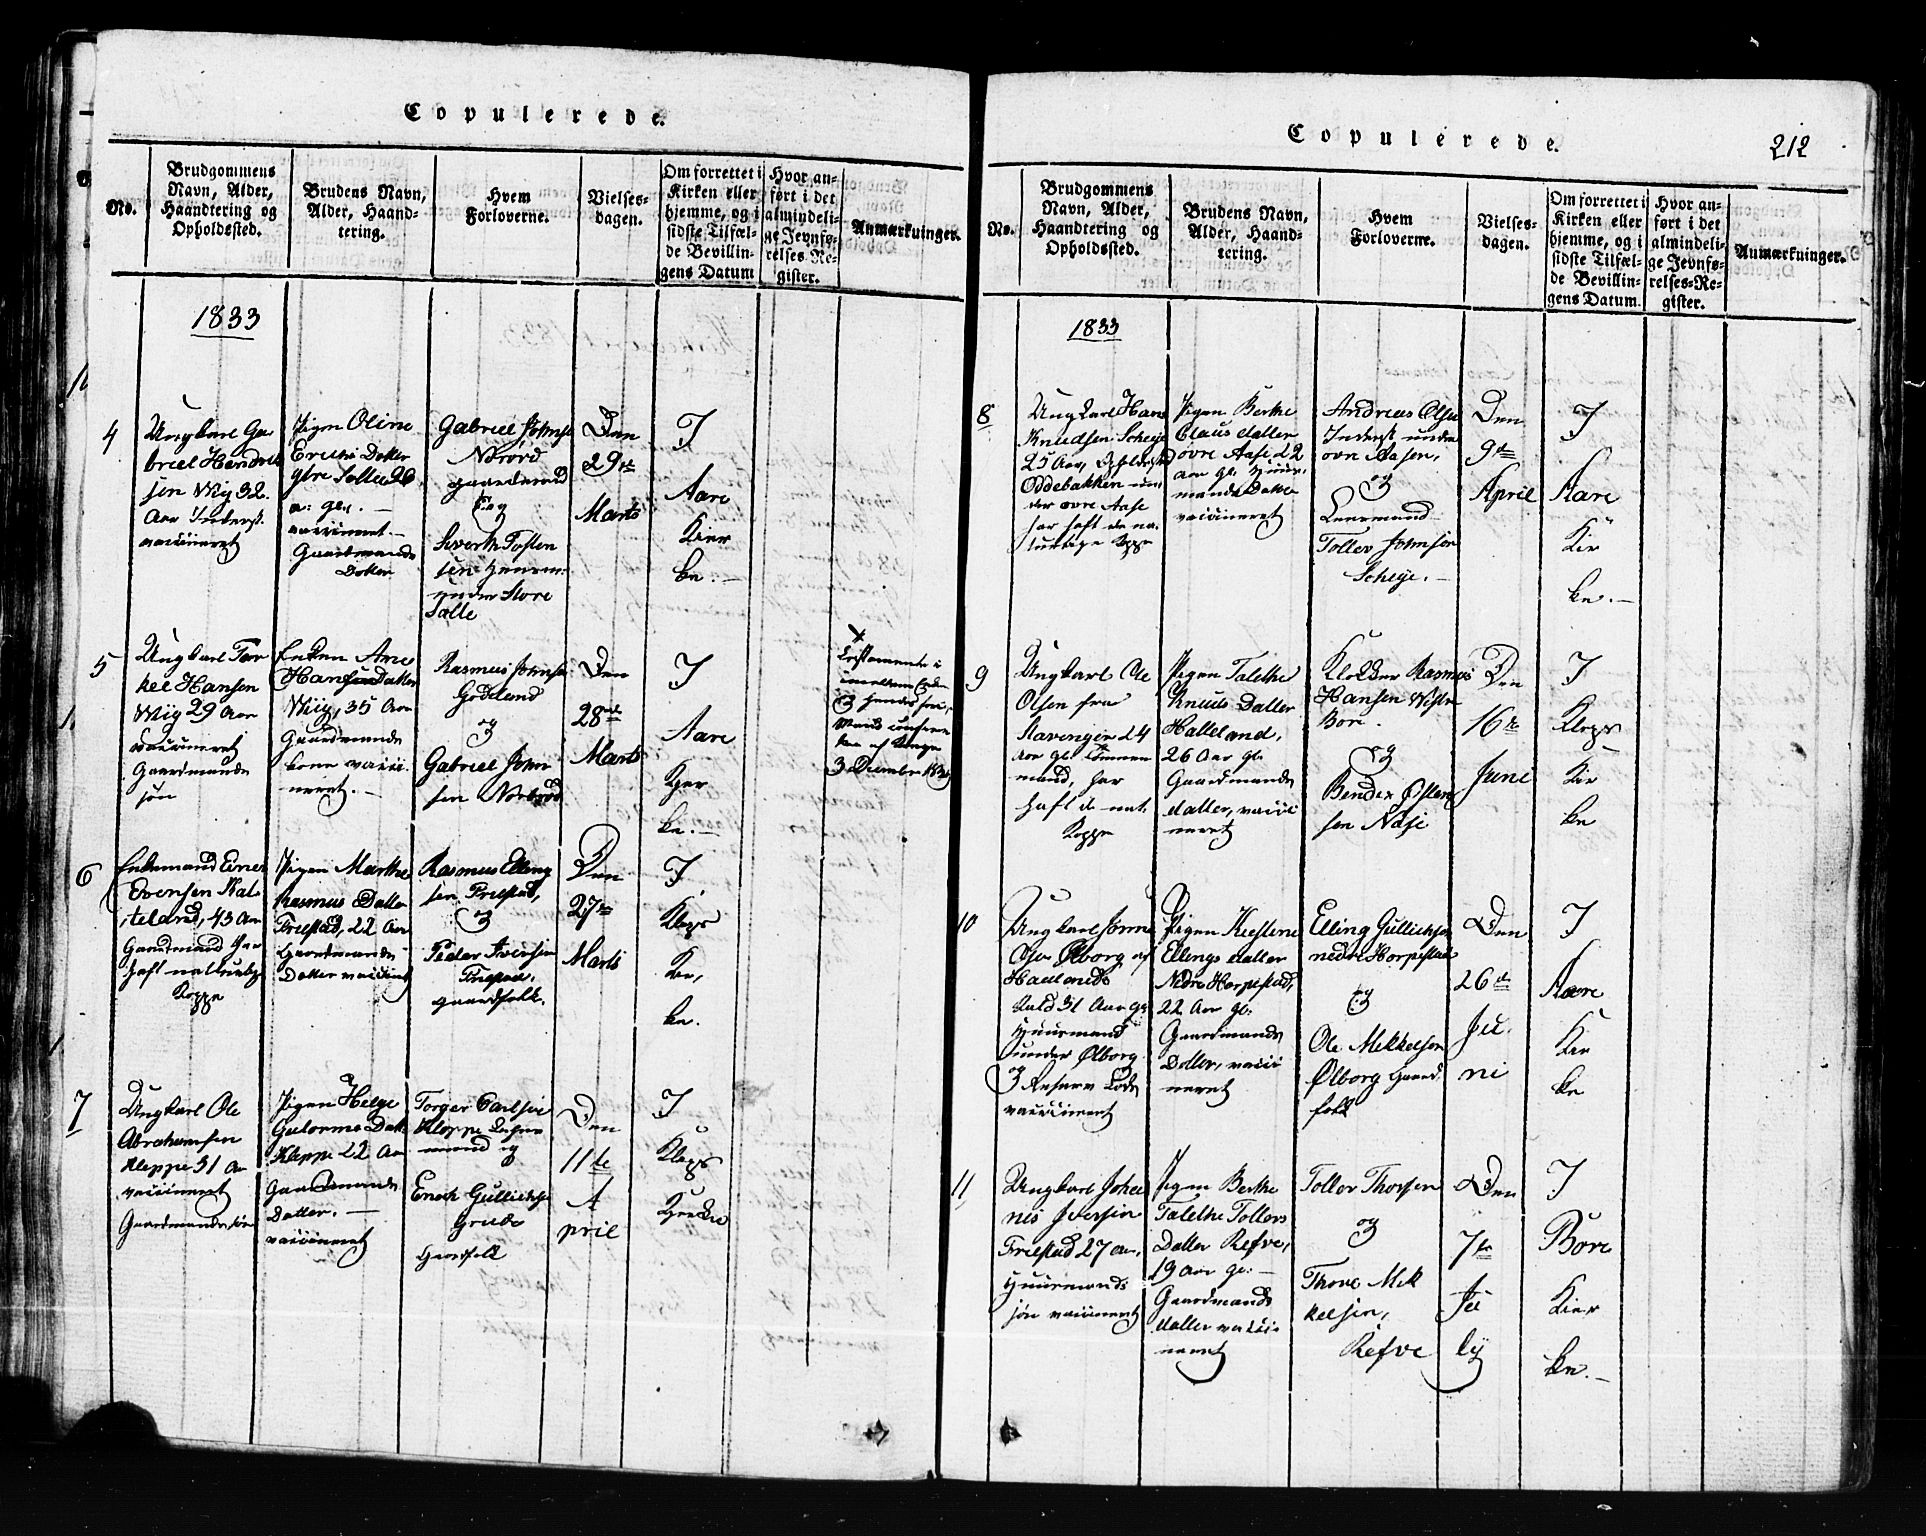 Copulerede.
No.
Brudgommens
Navn, Alder,
Haandtering og
Opholdssted.
Brudens Navn,
Alder, Haand-
tering.
Hvem
Forloverne.
Vielses-
dagen.
Om forrettet i
Kirken eller
hjemme, og i
sidste Tilfæl-
de Bevillin-
gens Datum
Hvor an-
ført i det
almindeli-
ge Jevnfø-
relses-Re-
gister.
Anmærkninger.
1833
4
Ungkarl Ga-
briel Hendrik
sen Wig 32
Aar Inderst.
vaccineret
Pigen Oline
Erichs Datter
Salte 26
a: gl. —
vaccineret. —
Gaardmands
Datter
Gabriel Johns
gaardmand
og
Sivert Tosten
sen
under Store
Salte
Den
29de
Marts
I
Aare
Kier
ke. —
5
Ungkarl Tor
kel Hansen
Wiig 29 Aar
vaccineret
Gaardmands
søn
Enken Ane
Hans Datter
Wiig, 35 Aar
Gaardmands
kone vacci-
neret. —
Rasmus Johns
Godeland
og
Gabriel John
sen
Den
28de
Marts
I
Aare
Kjer
ke. —
3 December
6
Enkemand Einer
Evensen Kal
, 43 Aar
Gaardmand har
haft naturlige
Koppe
Pigen Marthe
Rasmus Datter
Friestad, 22 Aar
Gaardmands
Datter vaccineret
Rasmus Elling
sen Friestad,
og
Peder Iversen
Friestad,
gaardfolk.
Den
27de
Marts
I
Klepp
Kir,
ke.
7
Ungkarl Ole
Abrahamsen
Kleppe 31 Aar
vaccineret
Gaardmands søn
Pigen Helge
Gulorms Datt
Kleppe 22 Aar
Gaardmands
Datter. —
vaccineret
Torger Carlsen
Kleppe
mand og
Enoch Gullichse
Grude
Gaardfolk
Den
11te
A
pril
I
Klepp
Kirke
Copulerede.
212
No.
Brudgommens
Navn, Alder,
Haandtering og
Opholdssted.
Brudens Navn,
Alder, Haand-
tering.
Hvem
Forloverne.
Vielses-
dagen.
Om forrettet i
Kirken eller
hjemme, og i
sidste Tilfæl-
de Bevillin-
gens Datum.
Hvor an-
ført i det
almindeli-
ge Jevnfø-
relses-Re-
gister.
Anmærkninger.
1833
8
Ungkarl Hans
Knudsen Scheje
25 Aar,
Oddebakken un-
der øvre Aase
har haft de na-
turlige Koppe
Pigen Berthe
Claus datter
øvre Aase 22
aar gl. Huus-
mands Datter
vaccineret
Andreas Olsen
Inderst under
øvre Aasen,
og
Leermand
Tollev Johnsen
Scheje. —
Den
9de
April
I
Aare
Kir
ke. —
9
Ungkarl Ole
Olsen fra
Stavanger 24
aar gl. Tømmer
mand, har
haft de nat.
Koppe
Pigen Talethe
Knuds Datter
Halleland,
26 Aar gl.
Gaardmands
datter, vacci
neret
Klokker Rasmus
Hansen Westre
Bore.
og
Bendix Østen
sen Næse
Den
16de
Juni
I
Klepp
Kir
ke
10
Ungkarl Sønne
Olsen Ølborg af
Haalands
31 Aar gl
Huusmand
under Ølborg
vaccineret
Pigen Kirstine
Ellings datter
Nedre Horpestad,
22 Aar gl.
Gaardmands
Datter, vacci
neret
Elling Gullichsen
nedre Horpestad
og
Ole Mikkelsen
Ølborg Gaard
folk
Den
26de
Ju-
ni
I
Aare
Kir
ke
11
Ungkarl Johan
nis Iversen
Friestad 27 aar,
Huusmands
søn vaccineret
Pigen Berthe
Talethe Tollevs
Datter Refve,
19 Aar gl. —
Gaardmands
datter vacci-
neret
Tollev Thorsen
og
Thore Mik
kelsen,
Refve
Den
7de
Ju
ly
I
Bore
Kier
ke. —